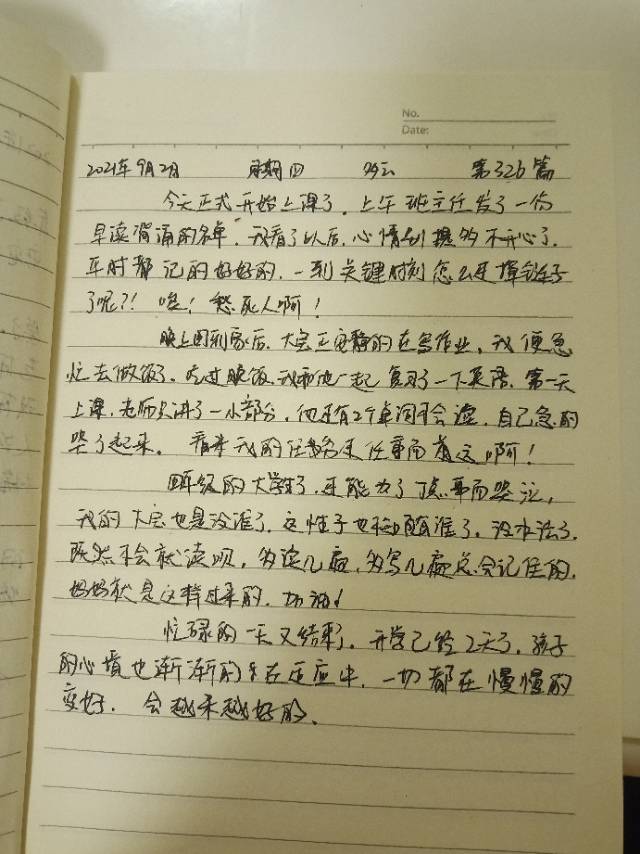 No.
Date:
2021年9月2日 星期四 多云 第326篇
今天正式开始上课了，上午班主任发了一份
早读背诵的名单，我看了以后，心情别提多不开心了，
平时都记的好好的，一到关键时刻怎么还掉链子
了呢？！唉！愁死人啊！
晚上回到家后，大宝正安静的在写作业，我便急
忙去做饭了。吃过晚饭，我和他一起复习了一下英语，第一天
上课，老师只讲了一小部分，他还有2个单词不会读，自己急的
哭了起来。看来我的任务是任重而道远啊！
四年级的大学生了，还能为了点事而哭泣，
我的大宝也是没谁了，这性子也不知随谁了，没办法了，
既然不会就读呗，多读几遍，多写几遍总会记住的，
妈妈就是这样过来的，加油！
忙碌的一天又结束了，开学已经2天了，孩子
的心境也渐渐的在适应中，一切都在慢慢的
变好，会越来越好的。